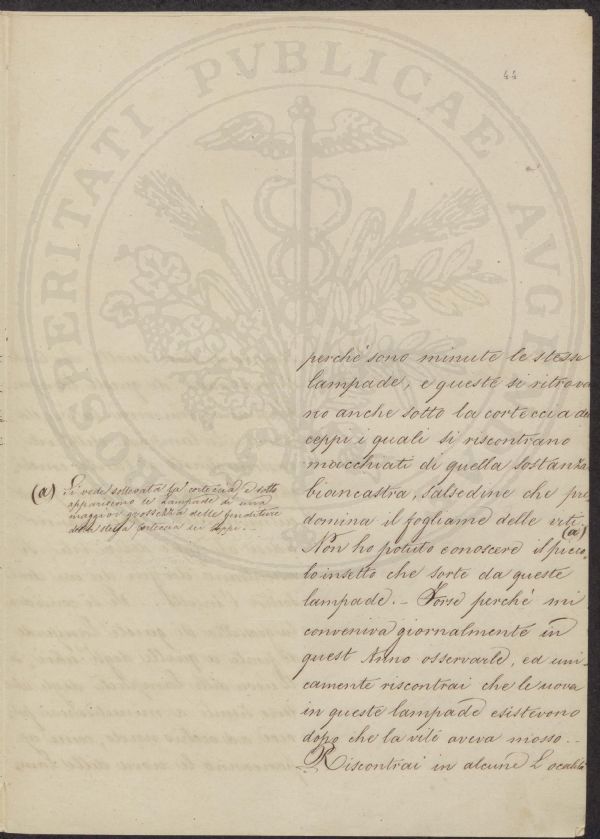 44
perchè sono minute le stesse
lampade, e queste si ritrova
no anche sotto la corteccia dei
ceppi i quali si riscontrano
macchiati di quella sostanza
biancastra, salsedine che pre
domina il fogliame delle viti.
(a)
Non ho potuto conoscere il picco
lo insetto che sorte da queste
lampade. - Forse perchè mi
conveniva giornalmente in
quest Anno osservarle, ed uni-
camente riscontrai che le uova
in queste lampade esistevono
dopo che la vite aveva mosso. -
Riscontrai in alcune Località
(a) Si vede sollevata la corteccia e sotto
appariscono le Lampade di una
maggior grossezza delle fenditure
della stessa corteccia sui ceppi.
PROSPERITATI PVBLICAE AVGENDAE